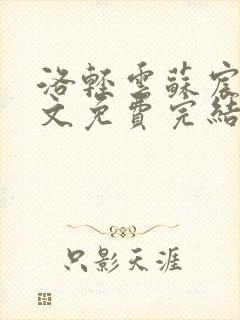 洛輕雲蘇宸
文免費完結
只影天涯